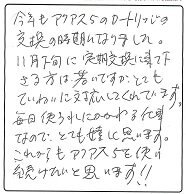 今年もアクアス5のカートリッジの
交換の時期になりました。
11月下旬に定期交換に来て下
さる方は若いですが、とても
ていねいに対応してくれています。
毎日使う水にかかわる仕事
なので、とても嬉しく思います。
これからもアクアス5を使い
続けたいと思います!!